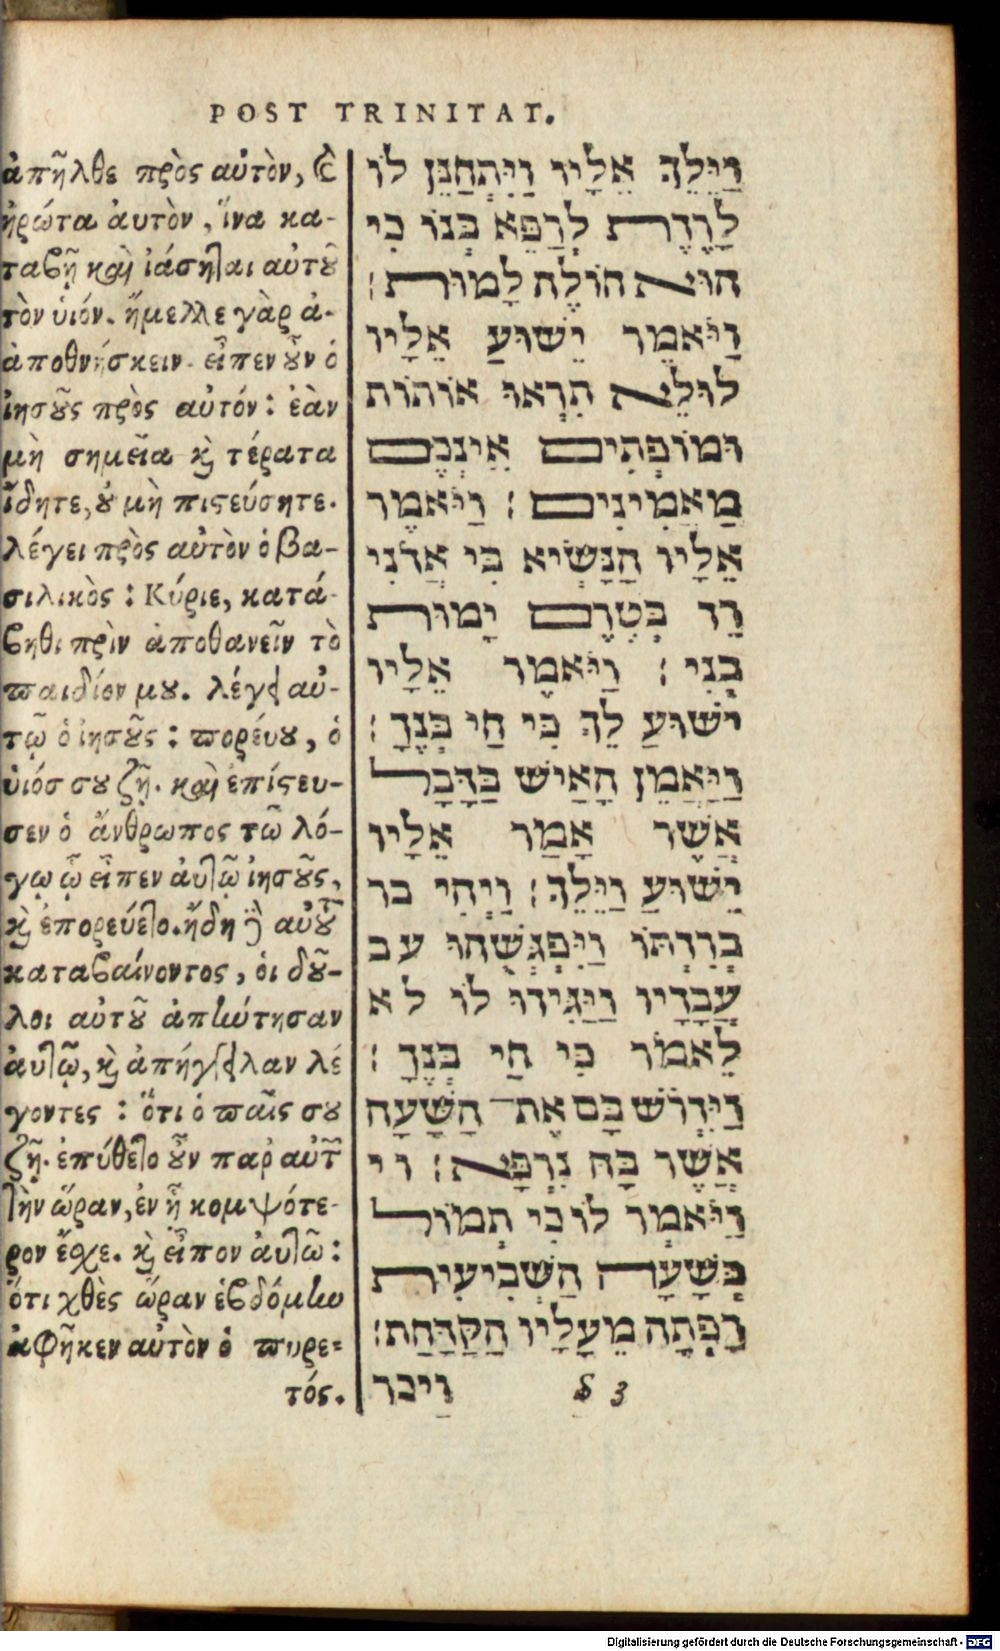 POST TRINITAT.
ἀπῆλθε πρὸς αὐτὸν, καὶ
ἠρώτα ἀυτὸν, ἵνα κα-
ταβῇ καὶ ἰάσηται αὐτοῦ
τὸν ὑιόν. ἤμελλε γὰρ ἀ-
ἀποθνήσκειν. εἶπεν οὖν ὁ
ἰησοῦς πρὸς αὐτόν: ἐὰν
μὴ σημεῖα καὶ τέρατα
ἴδητε, οὐ μὴ πιςεύσητε.
λέγει πρὸς αὐτὸν ὁ βα-
σιλικὸς: Κύριε, κατά-
βηθι πρὶν ἀποθανεῖν τὸ
παιδίον μου. λέγει αὐ-
τῷ ὁ ἰησοῦς: πορέυου, ὁ
ὑιόσ σου ζῇ. καὶ ἐπίςευ-
σεν ὁ ἄνθρωπος τῶ λό-
γῳ ᾧ εἶπεν ἀυτῷ ἰησοῦς,
καὶ ἐπορεύετο. ἤδη δὲ αὐτοῦ
καταβαίνοντος, ὁι δοῦ-
λοι αὐτοῦ ἀπήντησαν
ἀυτῷ, καὶ ἀπήγγειλαν λέ
γοντες: ὅτι ὁ παῖς σου
ζῇ. ἐπύθετο οὖν παρ αὐτῶν
τὴν ὥραν, ἐν ᾗ κομψότε-
ρον ἔσχε. καὶ εἶπον ἀυτῶ:
ὅτι χθὲς ὥραν ἑβδόμην
ἀφῆκεν αὐτὸν ὁ πυρε=
τός.
וַיֵּלֵךְ אֵלָיו וַיִּתְחַנֵּן לוֹ
לָרֶדֶת לְרַפֵּא בְּנוֹ כִּי
הוּא הוֹלֶה לָמוּת׃
וַיֹּאמֶר יֵשׁוּעַ אֵלָיו
לוּלֵא תִרְאוּ אוֹתוֹת
וּמוֹפְתִים אֵינְכֶם
מַאֲמִינִים׃ וַיֹּאמֶר
אֵלָיו הַנָּשִׂיא כִּי אֲדֹנִי
רֵד בְּטֶרֶם יָמוּת
בְּנִי׃ וַיֹּאמֶר אֵלָיו
יֵשׁוּעַ לֵךְ כִּי חַי בְּנֶךָ׃
וַיַּאֲמֵן הָאִישׁ בַּדָּבָר
אֲשֶׁר אָמַר אֵלָיו
יֵשׁוּעַ וַיֵּלֵךְ׃ וַיְהִי בר
בְרִדְתּוֹ וַיִּפְגְּשֻׁהוּ עב
עֲבָדָיו וַיַּגִּידוּ לוֹ לא
לֵאמֹר כִּי חַי בְּנֶךָ׃
וַיִּדְרֹשׁ בָּם אֶת־ הַשָּׁעָה
אֲשֶׁר בָּהּ נִרְפָּא׃ וי
וַיֹּאמְרוּ לוֹ כִּי תְמוֹל
בְּשָׁעָה הַשְּׁבִיעִית
רָפְתָה מֵעָלָיו הַקַּדַּחַת׃
וַיכר
δ 3
Digitalisierung gefördert durch die Deutsche Forschungsgemeinschaft - DFG